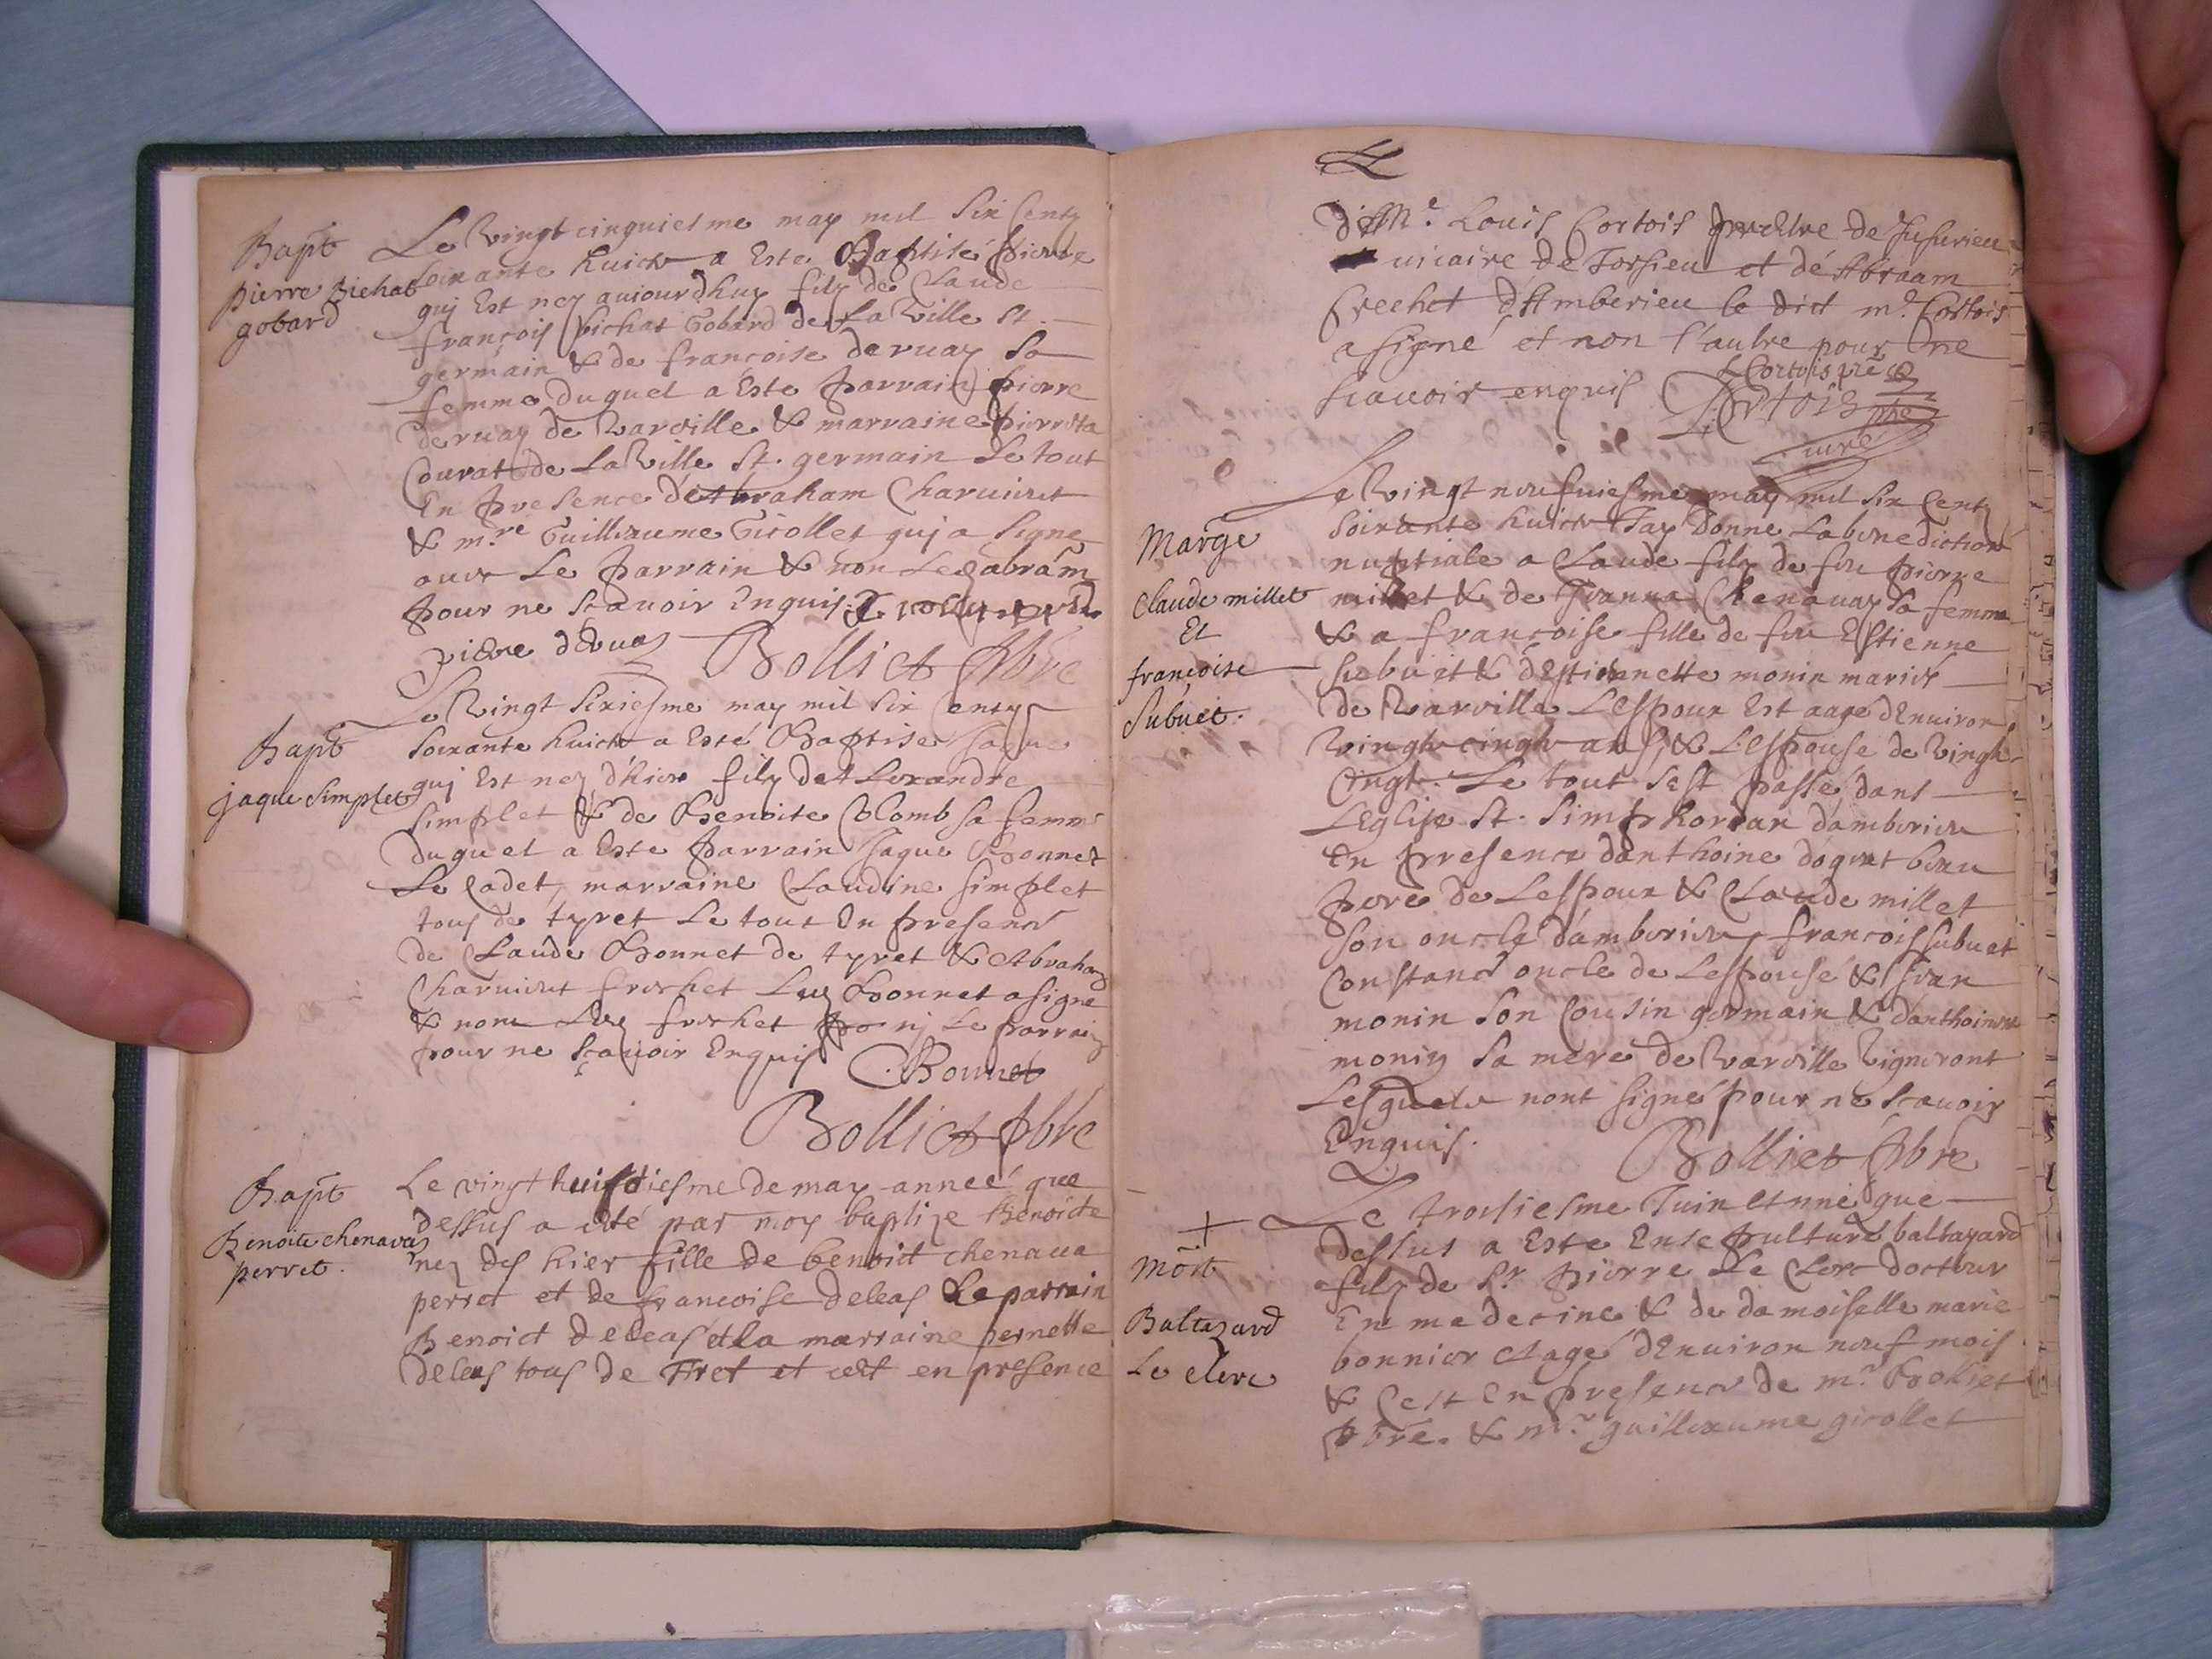 Bapt
pierre pichat
gobard
Le Vingt cinquiesme may mil Six Centz
soixante huict a Este Baptisé pierre
quj Est nez auiourdhuy filz de Claude
françois pichat Gobard de La Ville St.
germain & de françoise deruay sa
femme duquel a Este parrain pierre
deruay de Varville & marraine pierreta
Courat de La Ville St. germain Le tout
En presence de Abraham Charuieut
& m.re Guilleaume Girollet quj a signe
auec Le parrain & non Led abrãm
pour ne scauoir Enquis.
piere deruay Bolliet pbre
Bapt
jaque simplet
Le Vingt Sixiesme may mil Six Centz
Soixante huict a Esté Baptise Jaque
quj Est nez d'hier filz de Alexandre
Simplet & de Benoite Colomb sa femme
duquel a Este parrain Jaque Bonnet
Le Cadet, marraine Claudine simplet
tous de tyret Le tout En presence
de Claude Bonnet de tyret & Abraham
Charuieut frechet Led Bonnet a signe
& non Led frechet nj Le parrain
pour ne scauoir Enquis C. Bonnet
Bolliet pbre
Bapt
Benoite chenavaz
perret.
Le vingt huictiesme de may anneé que
dessus a esté par moy baptize Benoite
nez des hier fille de benoit chenaua
perret et de francoise deleas Le parrain
Benoict deleas et la marraine pernette
deleas tous de Tiret et cest en presence
de M.e Louis Cortois prebtre de Jusurieu
uicaire de Torsieu et de Abraam
frechet d'Amberieu le dict m.e Cortois
a signé et non l'autre pour ne
scauoir enquis L Cortois pre
L. Cortois pbre
curé
Marge
Claude millet
Et
françoise
Subuet.
Le Vingt neufuiesme may mil six Centz
soixante huict Jay donne La benediction
nuptiale a Claude filz de feu pierre
millet & de Jeanna Chenauaz sa femme
& a françoise fille de feu Estienne
Subuet & d'Estiennette monin mariés
de Varville L'Espoux Est aage dEnuiron
Vingt cingt ans, & L'Espouse de Vingt
Cingt. Le tout sest passe dans
LEglise St. Simphorian damberieu
En presence danthoine doguet beau
pere de Lespoux & Claude millet
son oncle damberieu, francois subuet
Constanc oncle de Lespouse & Jean
monin son Cousin germain & danthoinne
monin sa mere de Varville Vigneront
Lesquels nont signé pour ne scauoir
Enquis. Bolliet pbre
+
Mort
Baltazard
Le clerc
Le troisiesme Juin Anné que
dessus a Este Ensepulturé baltazard
filz de Sr. pierre Le Clerc docteur
En medecine & de damoiselle marie
bonnier Aagé dEnuiron neuf mois
& Cest En presence de m.r Bolliet
pbre. & m.r guilleaume girollet